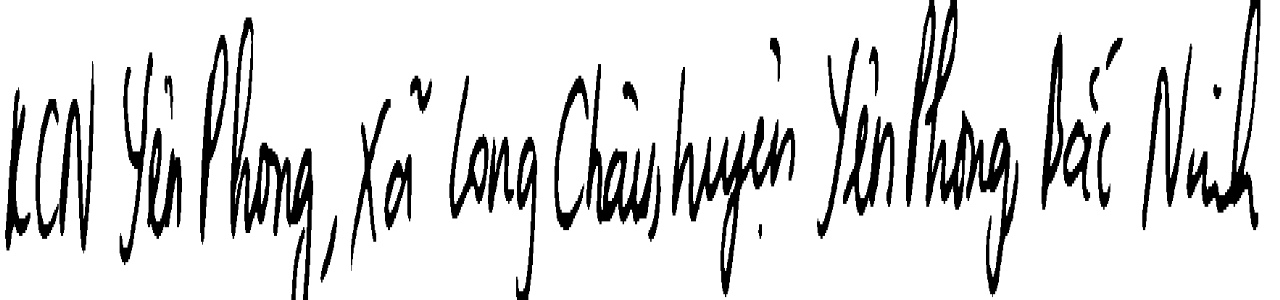 KCN Yên Phong, Xã Long Châu, huyện Yên Phong, Bắc Ninh